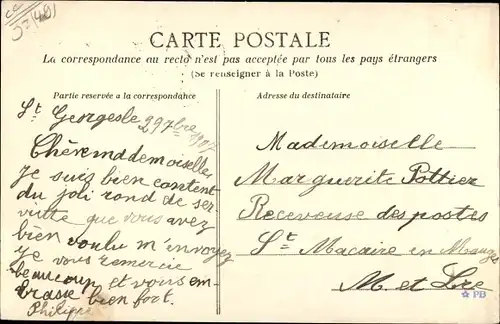 CARTE POSTALE
La correspondance au recto n'est pas acceptée par tous les pays étrangers
(Se renseigner à la Poste)
Partie reservée a la correspondance
St Georges le 29 7bre 1907
Chère mademoiselle
je suis bien content
du joli rond de ser-
viette que vous avez
bien voulu m'envoyez
je vous remercie
beaucoup et vous em-
brasse bien fort.
Philippe
Adresse du destinataire
Mademoiselle
Marguerite Pottier
Receveuse des postes
St Macaire en Mauges
M. et Lre
PB